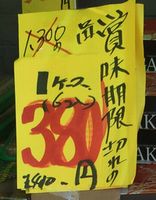 賞味期限切れの
品
1,300円
1ケース
(6コ入)
380
円